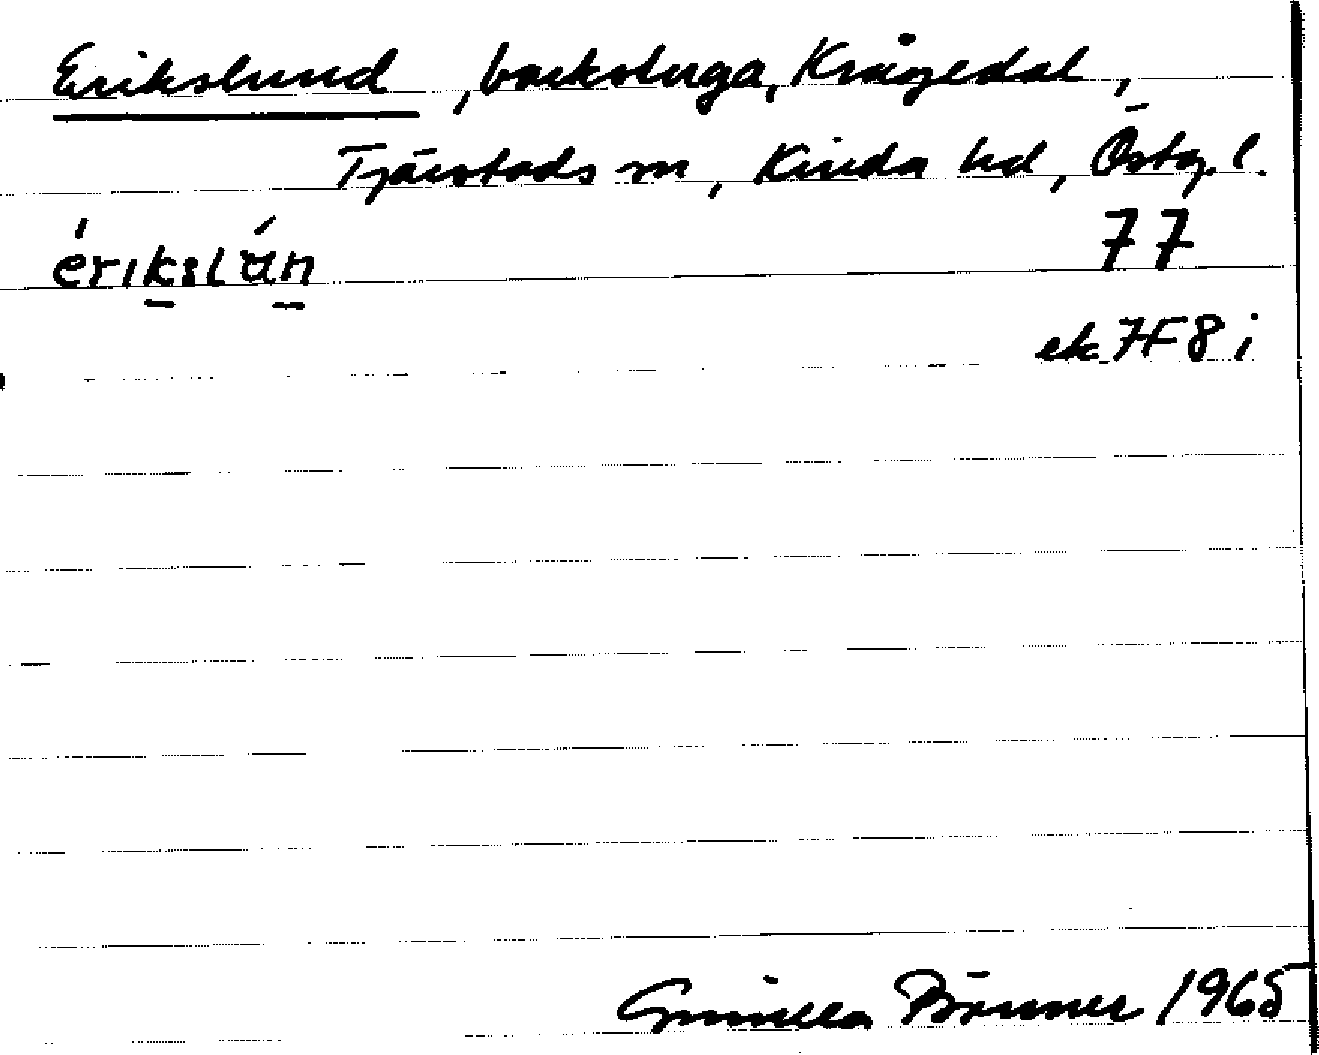 Erikslund, backstuga, Krågedal,
Tjärstads sn, Kinda hd, Östg. l.
érikslán 77
ek 7F8i
Gunilla Börner 1965